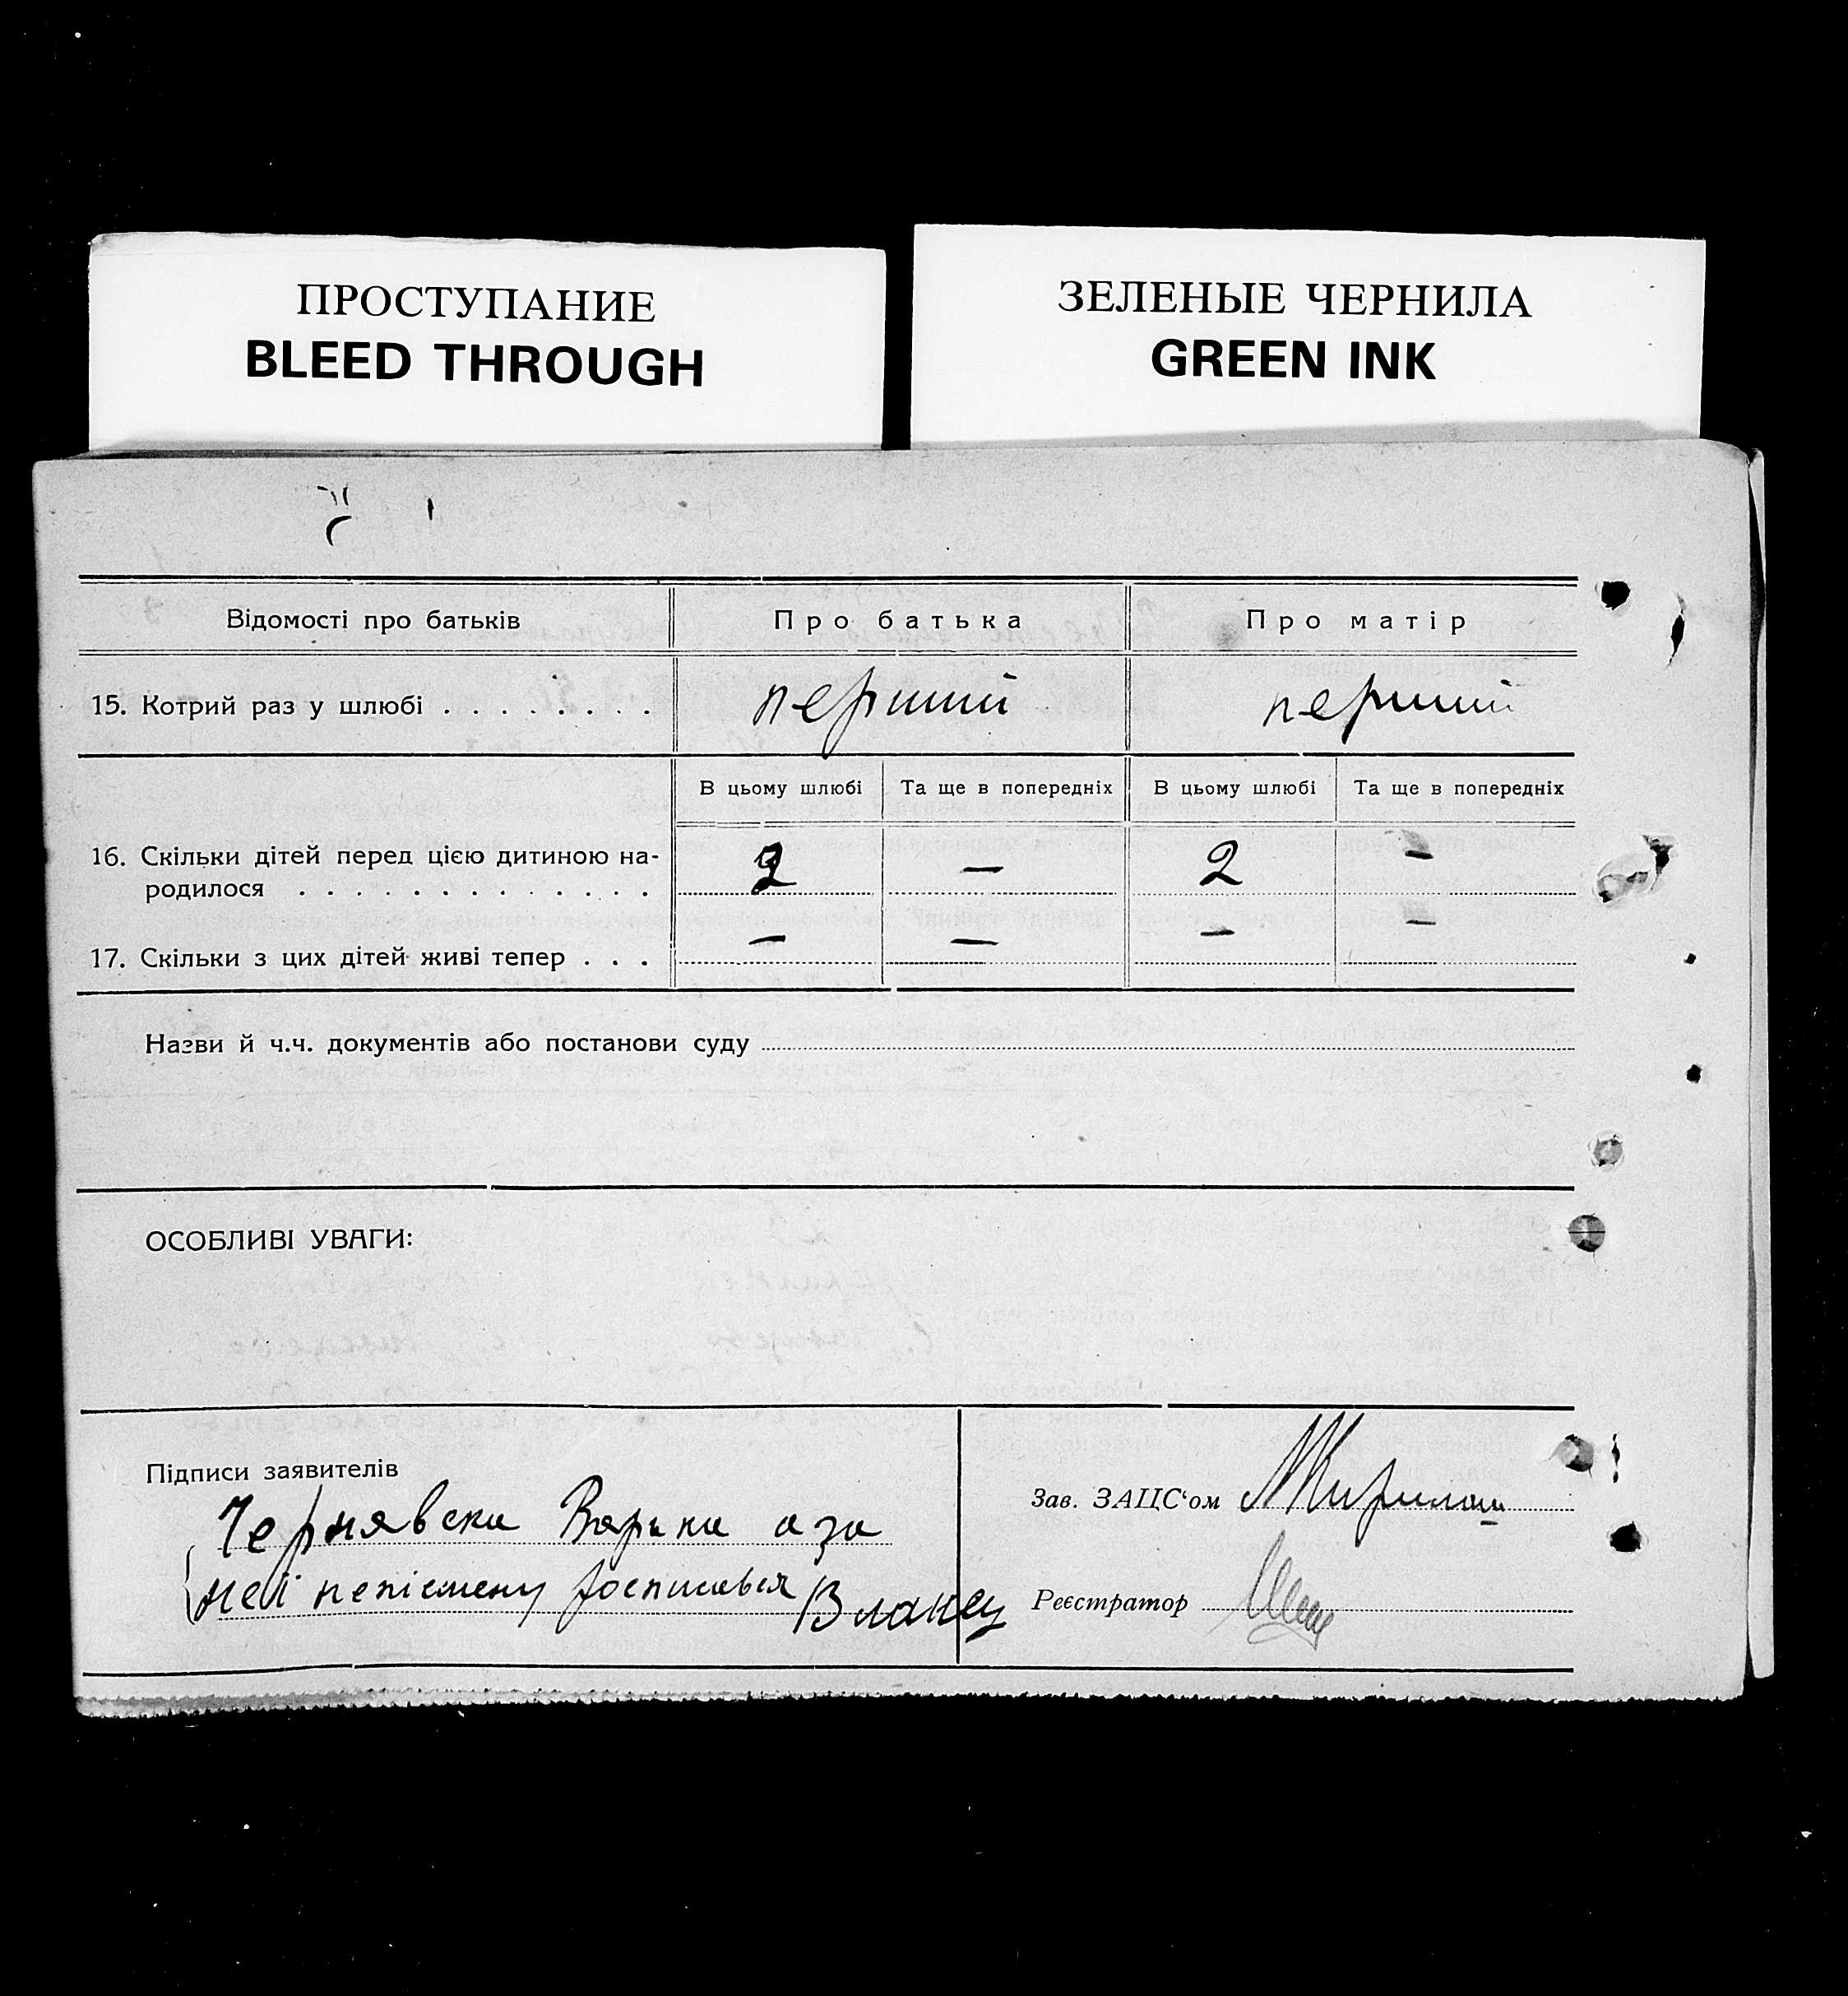 ПРОСТУПАНИЕ
BLEED THROUGH
ЗЕЛЕНЫЕ ЧЕРНИЛА
GREEN INK
Відомості про батьків
Про батька
Про матір
15. Котрий раз у шлюбі . . . . . . . .
перший
перший
В цьому шлюбі
Та ще в попередніх
В цьому шлюбі
Та ще в попередніх
16. Скільки дітей перед цією дитиною на-
родилося . . . . . . . . . . . . .
2
—
2
—
17. Скільки з цих дітей живі тепер . . .
—
—
—
—
Назви й ч.ч. документів або постанови суду
ОСОБЛИВІ УВАГИ:
Підписи заявителів
Чернявска Варька а за
неї непісмену росписався
Зав. ЗАЦС‘ом
Реєстратор